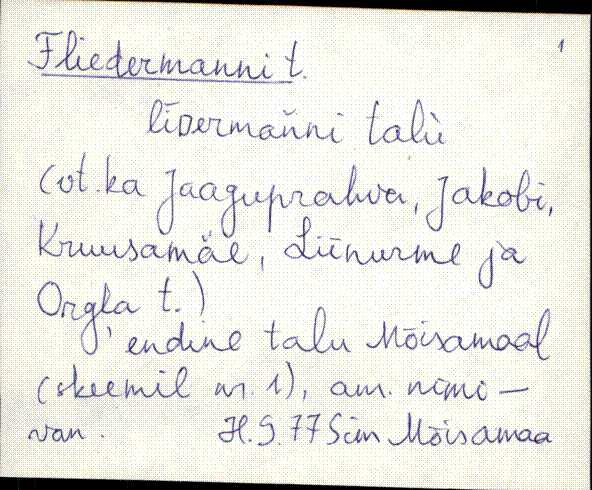 Fliedermanni t.
1
līᴅermaǹni talù
(vt. ka Jaaguprahva, Jakobi,
Kruusamäe, Liinurme ja
Orgla t.)
'endine talu Mõisamaal
(skeemil nr. 1), am. nimi –
van. H.S. 77 Sim Mõisamaa